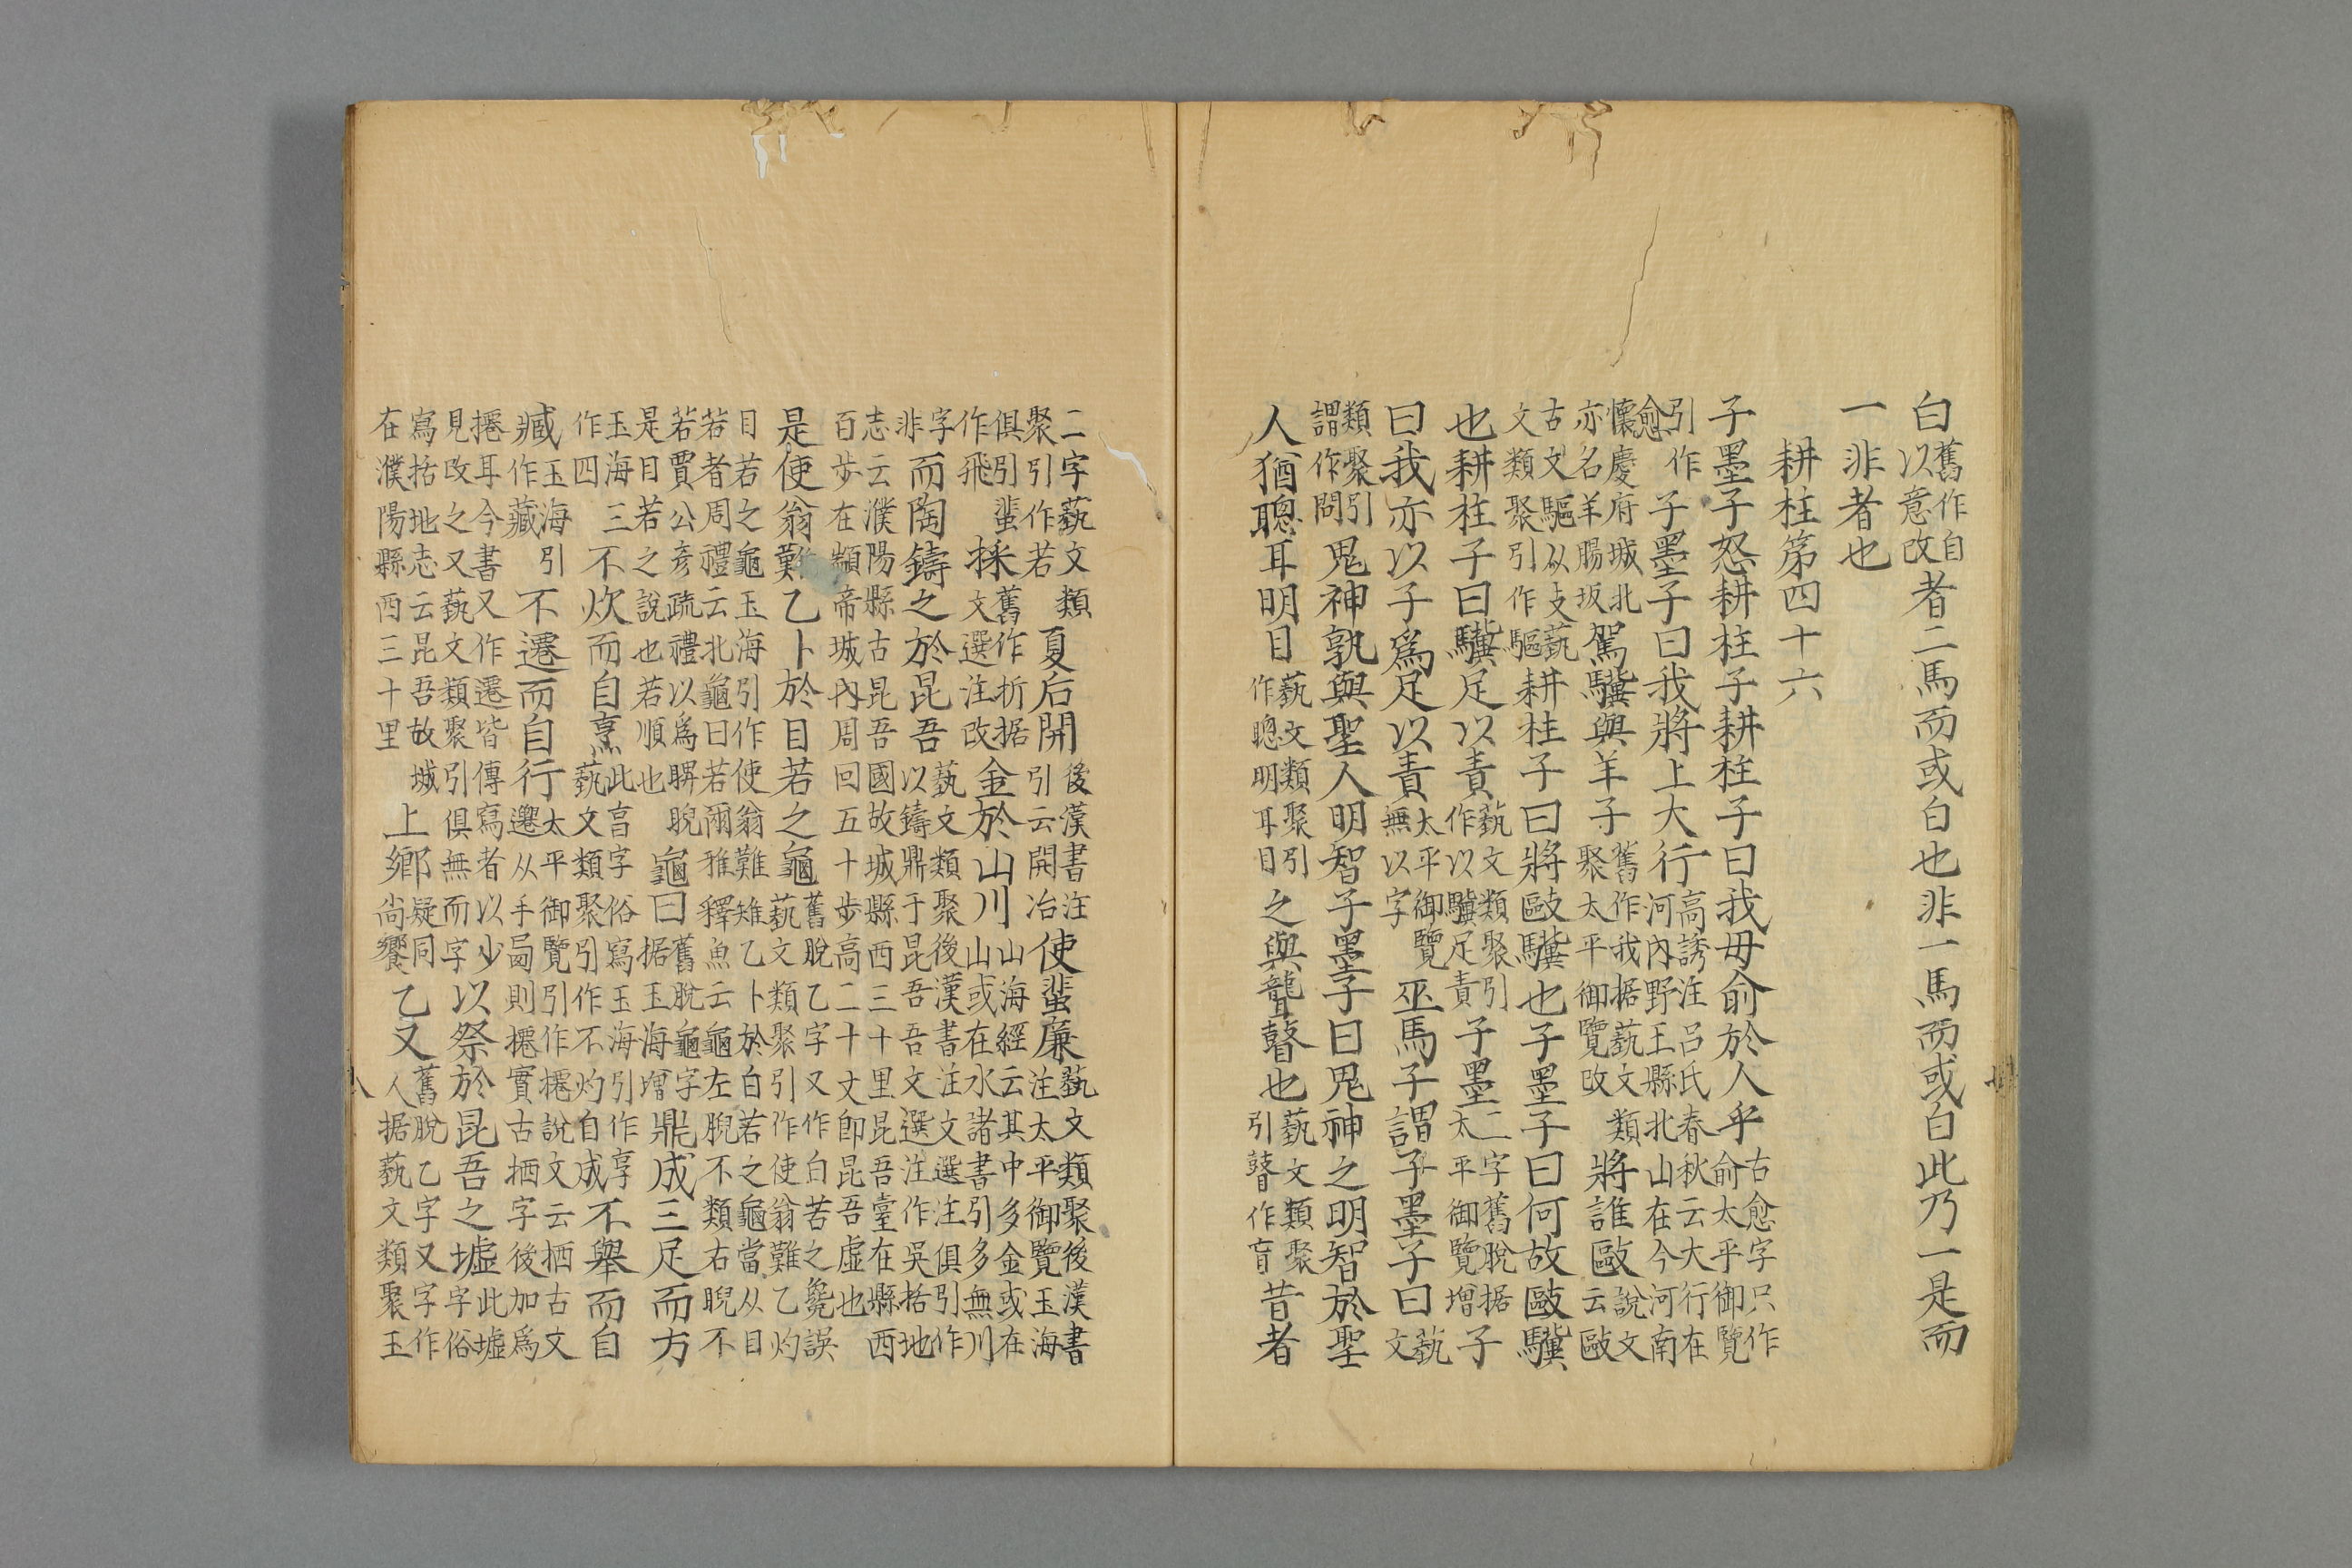 白舊作自以意改者二馬而或白也非一馬而或白此乃一是而
一非者也
耕柱第四十六
子墨子怒耕柱子耕柱子曰我毋俞於人乎古愈字只作俞太平御覽
引作愈子墨子曰我將上大行高誘注呂氏春秋云大行在河內野王縣北山在今河南
懷慶府城北亦名羊腸坂駕驥與羊子舊作我据藝文類聚太平御覽改將誰敺說文云敺
古文驅从攴藝文類聚引作驅耕柱子曰將敺驥也子墨子曰何故敺驥
也耕柱子曰驥足以責藝文類聚引作以驥足責子墨二字舊脫据太平御覽增子
曰我亦以子爲足以責太平御覽無以字巫馬子謂子墨子曰藝文
類聚引謂作問鬼神孰與聖人明智子墨子曰鬼神之明智於聖
人猶聰耳明目藝文類聚引作聰明耳目之與聾瞽也藝文類聚引瞽作盲昔者
二字藝文類聚引作若夏后開後漢書注引云開冶使蜚廉藝文類聚後漢書注太平御覽玉海
俱引蜚作飛採舊作折据文選注改金於山川山海經云其中多金或在山或在水諸書引多無川
字非而陶鑄之於昆吾藝文類聚後漢書注文選注俱引作以鑄鼎于昆吾吾文選注作吳括地
志云濮陽縣古昆吾國故城縣西三十里昆吾臺在縣西百步在顓帝城內周回五十步高二十丈即昆吾虛也
是使翁難乙卜於目若之龜舊脫乙字又作白若之毚誤藝文類聚引作使翁難乙灼
目若之龜玉海引作使翁難雉乙卜於白若之龜當从目若者周禮云北龜曰若爾雅釋魚云龜左睨不類右睨不
若賈公彥疏禮以爲睥睨是目若之說也若順也龜曰舊脫龜字据玉海增鼎成三足而方
玉海三作四不炊而自烹此亯字俗寫玉海引作亨藝文類聚引作不灼自成不舉而自
臧玉海引作藏不遷而自行太平御覽引作說文云栖古文遷从手則實古栖字後加爲
耳今書又作遷皆傳寫者以少見改之又藝文類聚引俱無而字以祭於昆吾之墟此墟字俗
寫括地志云昆吾故城在濮陽縣西三十里上鄉疑同尚饗乙又舊脫乙字又字作人据藝文類聚玉